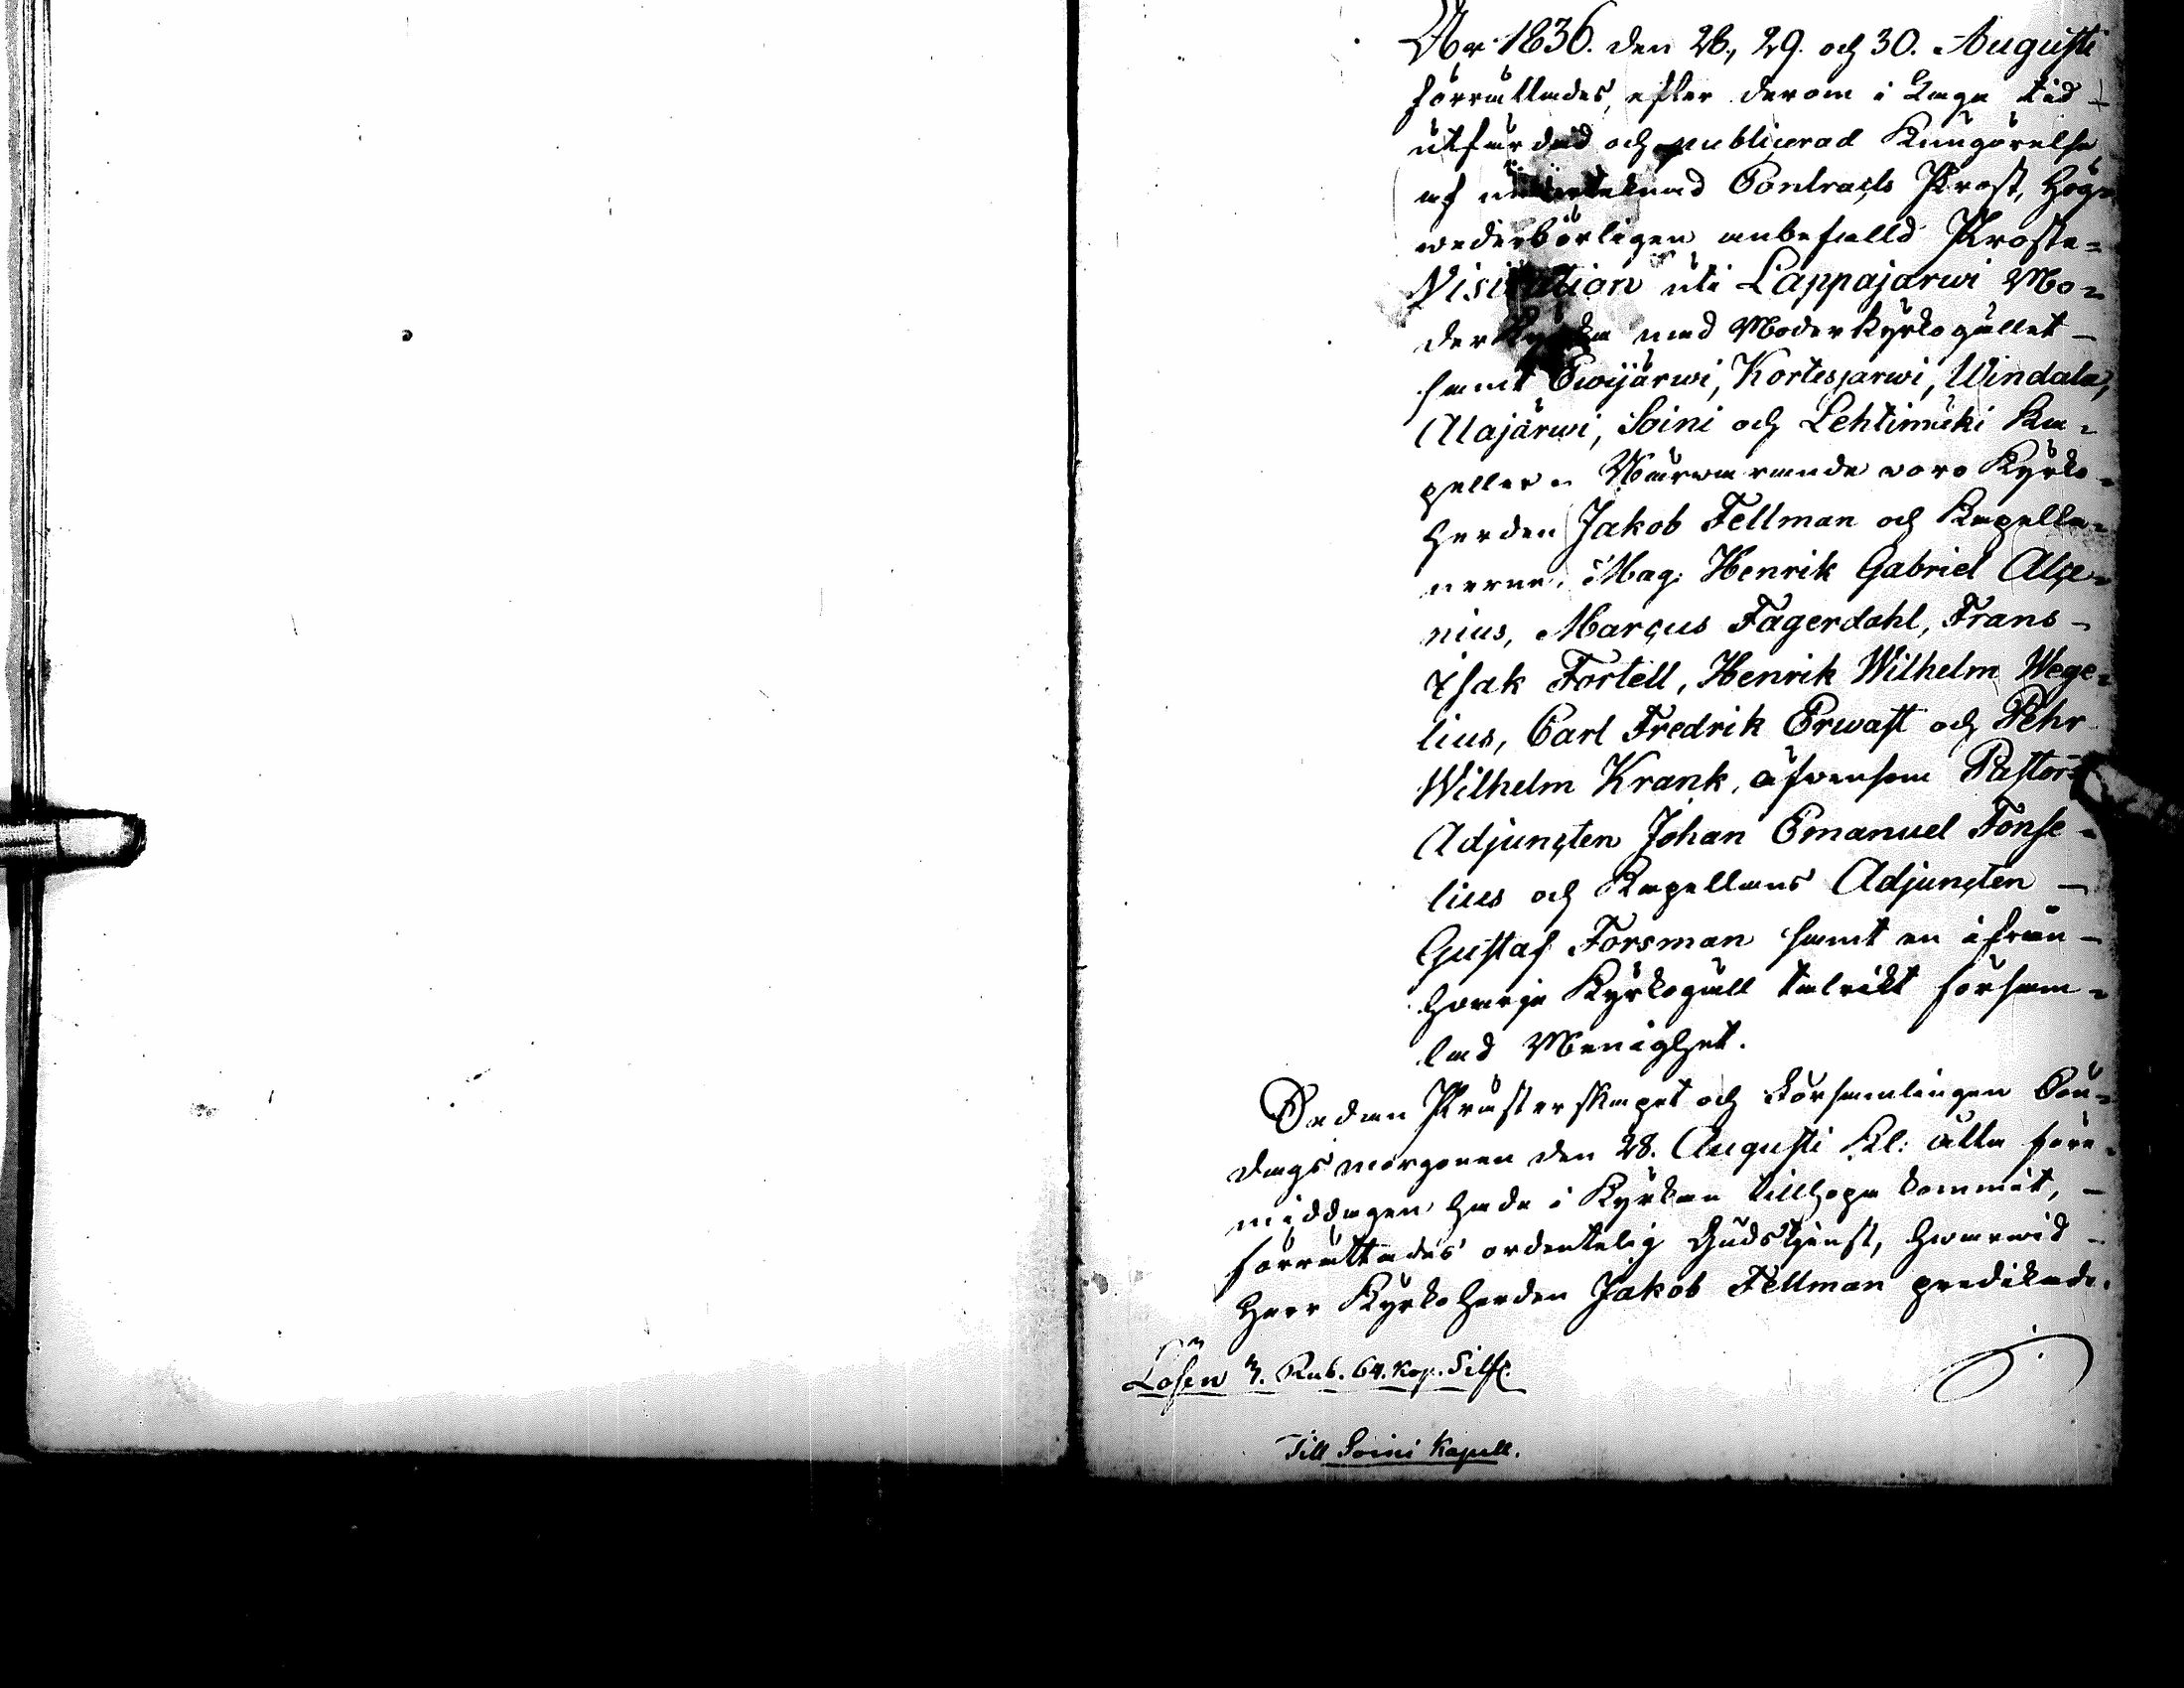 År 1836. den 28, 29. och 30. Augusti
förrättades, efter derom i Laga tid
utfärdad och publicerad Kungörelse
af undertecknad Contracts Prost, Hög=
wederbörligen anbefalld Proste=
Visitation uti Lappajärwi Mo=
derkyrka med Moderkyrkogället
samt Ewijärwi, Kortesjärwi, Windala,
Alajärwi, Soini och Lehtimäki Ka=
peller. Närwarande woro Kyrko=
herden Jakob Fellman och Kapella=
nerne: Mag: Henrik Gabriel Alce=
nius, Marcus Fagerdahl, Frans
Isak Fortell, Henrik Wilhelm Wege=
lius, Carl Fredrik Erwast och Pehr
Wilhelm Krank, äfwensom Pastors
Adjuncten Johan Emanuel Fonse=
lius och Kapellans Adjuncten
Gustaf Forsman samt en ifrån
hwarje Kyrkogäll talrikt försam=
lad Menighet.
Sedan Prästerskapet och Församlingen Sön=
dagsmorgonen den 28. Augusti Kl: åtta före=
middagen hade i Kyrkan tillhopa kommit,
förrättades ordentelig Gudstjenst, hwarwid
Herr Kyrkoherden Jakob Fellman predikade.
Lösen 3. Rub. 64. Kop. Silfr.
Till Soini Kapell.